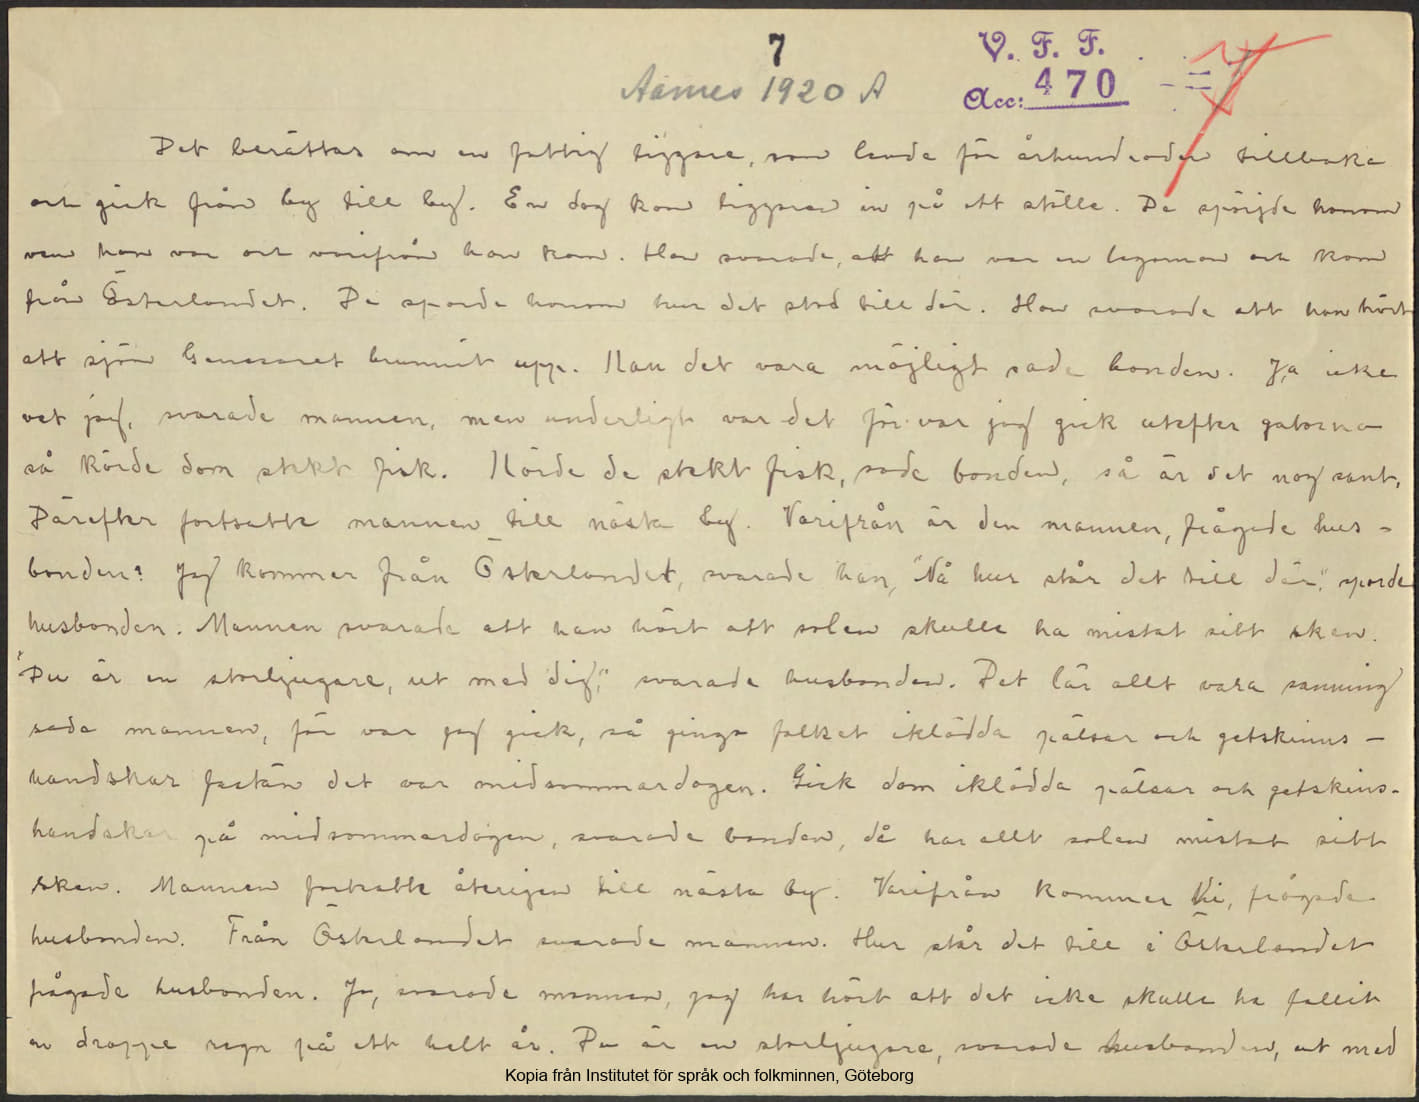 7
Aarnes 1920 A
V. F. F.
Acc: 470
Det berättas om en fattig tiggare, som levde för århundraden tillbaka
och gick från by till by. En dag kom tiggaren in på ett ställe. De spörjde honom
vem han var och varifrån han kom. Han svarade, att han var en byaman och kom
från Österlandet. De sporde honom hur det stod till där. Han svarade att han hört
att sjön Genesaret brunnit upp. Kan det vara möjligt sade bonden. Ja icke
vet jag, svarade mannen, men underligt var det för var jag gick utefter gatorna
så körde dom stekt fisk. Körde de stekt fisk, sade bonden, så är det nog sant.
Därefter fortsatte mannen till nästa by. Varifrån är den mannen, frågade hus-
bonden? Jag kommer från Österlandet, svarade han, "Nå hur står det till där", sporde
husbonden. Mannen svarade att han hört att solen skulle ha mistat sitt sken.
"Du är en storljugare, ut med dig", svarade husbonden. Det lär allt vara sanning
sade mannen, för var jag gick, så gingo folket iklädda pälsar och getskinns-
handskar fastän det var midsommardagen. Gick dom iklädda pälsar och getskins-
handskar på midsommardagen, svarade bonden, då har allt solen mistat sitt
sken. Mannen fortsatte återigen till nästa by. Varifrån kommer Ni, frågade
husbonden. Från Österlandet svarade mannen. Hur står det till i Österlandet
frågade husbonden. Jo, svarade mannen, jag har hört att det icke skulle ha fallit
en droppe regn på ett helt år. Du är en storljugare, svarade husbonden, ut med
Kopia från Institutet för språk och folkminnen, Göteborg